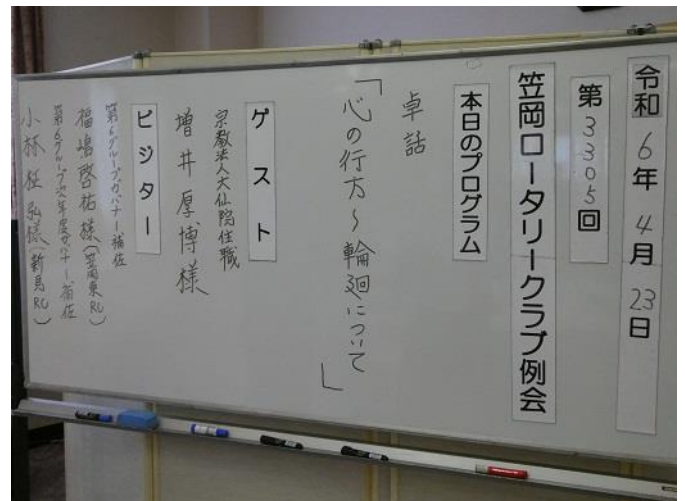 令和6年4月23日
第3305回
笠岡ロータリークラブ例会
本日のプログラム
卓話
「心の行方～輪廻について」
ゲスト
宗教法人大仙院住職
増井厚博様
ビジター
第6グループガバナー補佐
福嶋啓祐様(笠岡東RC)
第6グループ次年度ガバナー補佐
小林征弘様(新見RC)